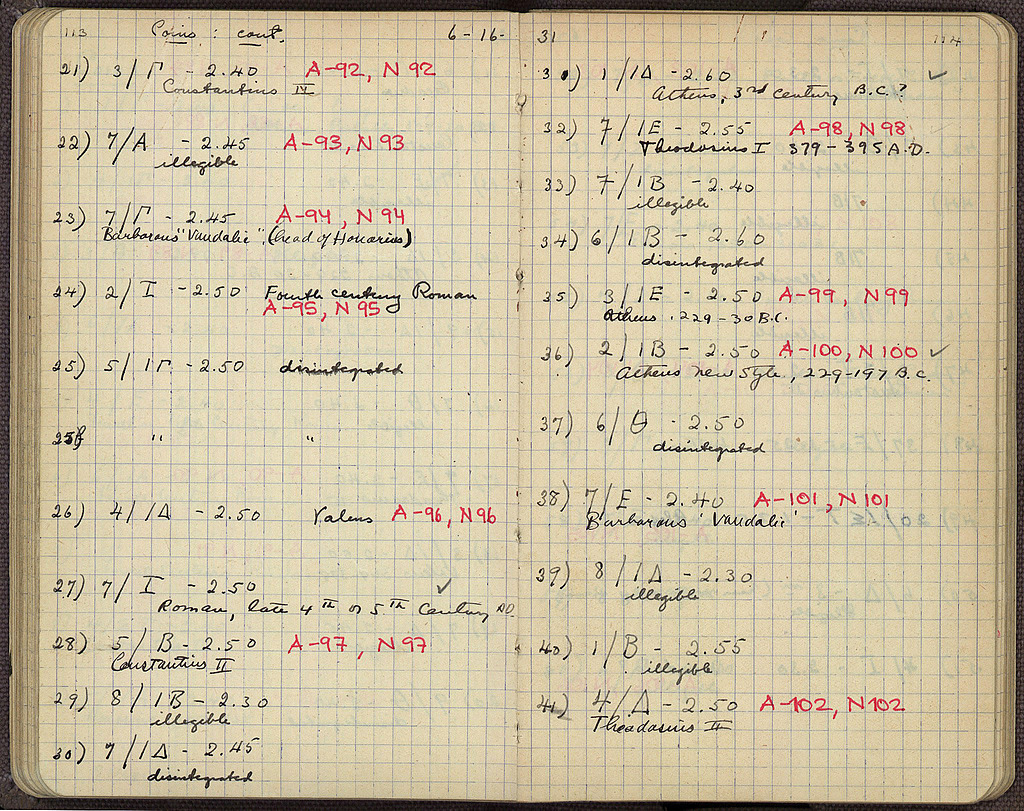 113 Coins : cont. 6-16-
21) 3/Γ - 2.40 A-92, N 92
Constantius IV
22) 7/A - 2.45 A-93, N 93
illegible
23) 7/Γ - 2.45 A-94, N 94
Barbarous "Vandalic". (head of Honorius)
24) 2/I - 2.50 Fourth century Roman
A-95, N 95
25) 5/ΙΓ - 2.50 disintegrated
25b) " "
26) 4/ΙΔ - 2.50 Valens A-96, N 96
27) 7/I - 2.50 ✓
Roman, late 4th or 5th Century AD.
28) 5/B - 2.50 A-97, N 97
Constantius II
29) 8/ΙΒ - 2.30
illegible
30) 7/ΙΔ - 2.45
disintegrated
31 114
31) 1/ΙΔ - 2.60 ✓
Athens, 3rd century B.C.?
32) 7/ΙΕ - 2.55 A-98, N 98
Theodosius I 379-395 A.D.
33) 7/ΙΒ - 2.40
illegible
34) 6/ΙΒ - 2.60
disintegrated
35) 3/ΙΕ - 2.50 A-99, N 99
Athens. 229-30 B.C.
36) 2/ΙΒ - 2.50 A-100, N 100 ✓
Athens new style, 229-197 B.C.
37) 6/Θ - 2.50
disintegrated
38) 7/E - 2.40 A-101, N 101
Barbarous 'Vandalic'
39) 8/ΙΔ - 2.30
illegible
40) 1/B - 2.55
illegible
41) 4/Δ - 2.50 A-102, N 102
Theodosius II